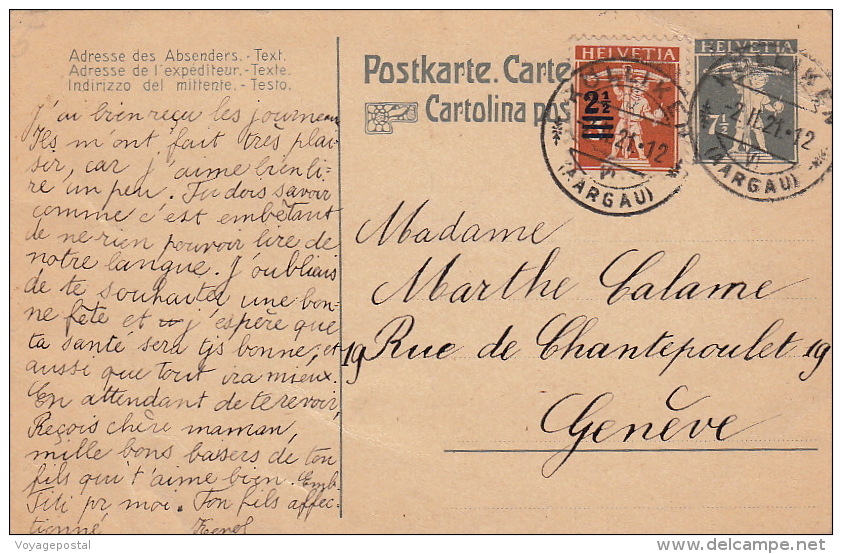 Adresse des Absenders. - Text.
Adresse de l'expéditeur. - Texte.
Indirizzo del mittente. - Testo.
J'ai bien reçu les journeau
Ils m'ont fait très plai-
sir, car j'aime bien li-
re un peu. Tu dois savoir
comme c'est embêtant
de ne rien pouvoir lire de
notre langue. J'oubliais
de te souhaiter une bon-
ne fête et j'espère que
ta santé sera tjs bonne, et
aussi que tout ira mieux.
En attendant de te revoir,
Reçois chère maman,
mille bons baisers de ton
fils qui t'aime bien. Emb.
Titi pr moi. Ton fils affec-
tionné
Postkarte. Carte
Cartolina pos
HELVETIA
2½
HELVETIA
7½
KÖLLIKEN
21.12
VI
(AARGAU)
KÖLLIKEN
-2.II.21.12
VI
(AARGAU)
Madame
Marthe Calame
19 Rue de Chantepoulet 19
Genève
Voyagepostal
© www.delcampe.net